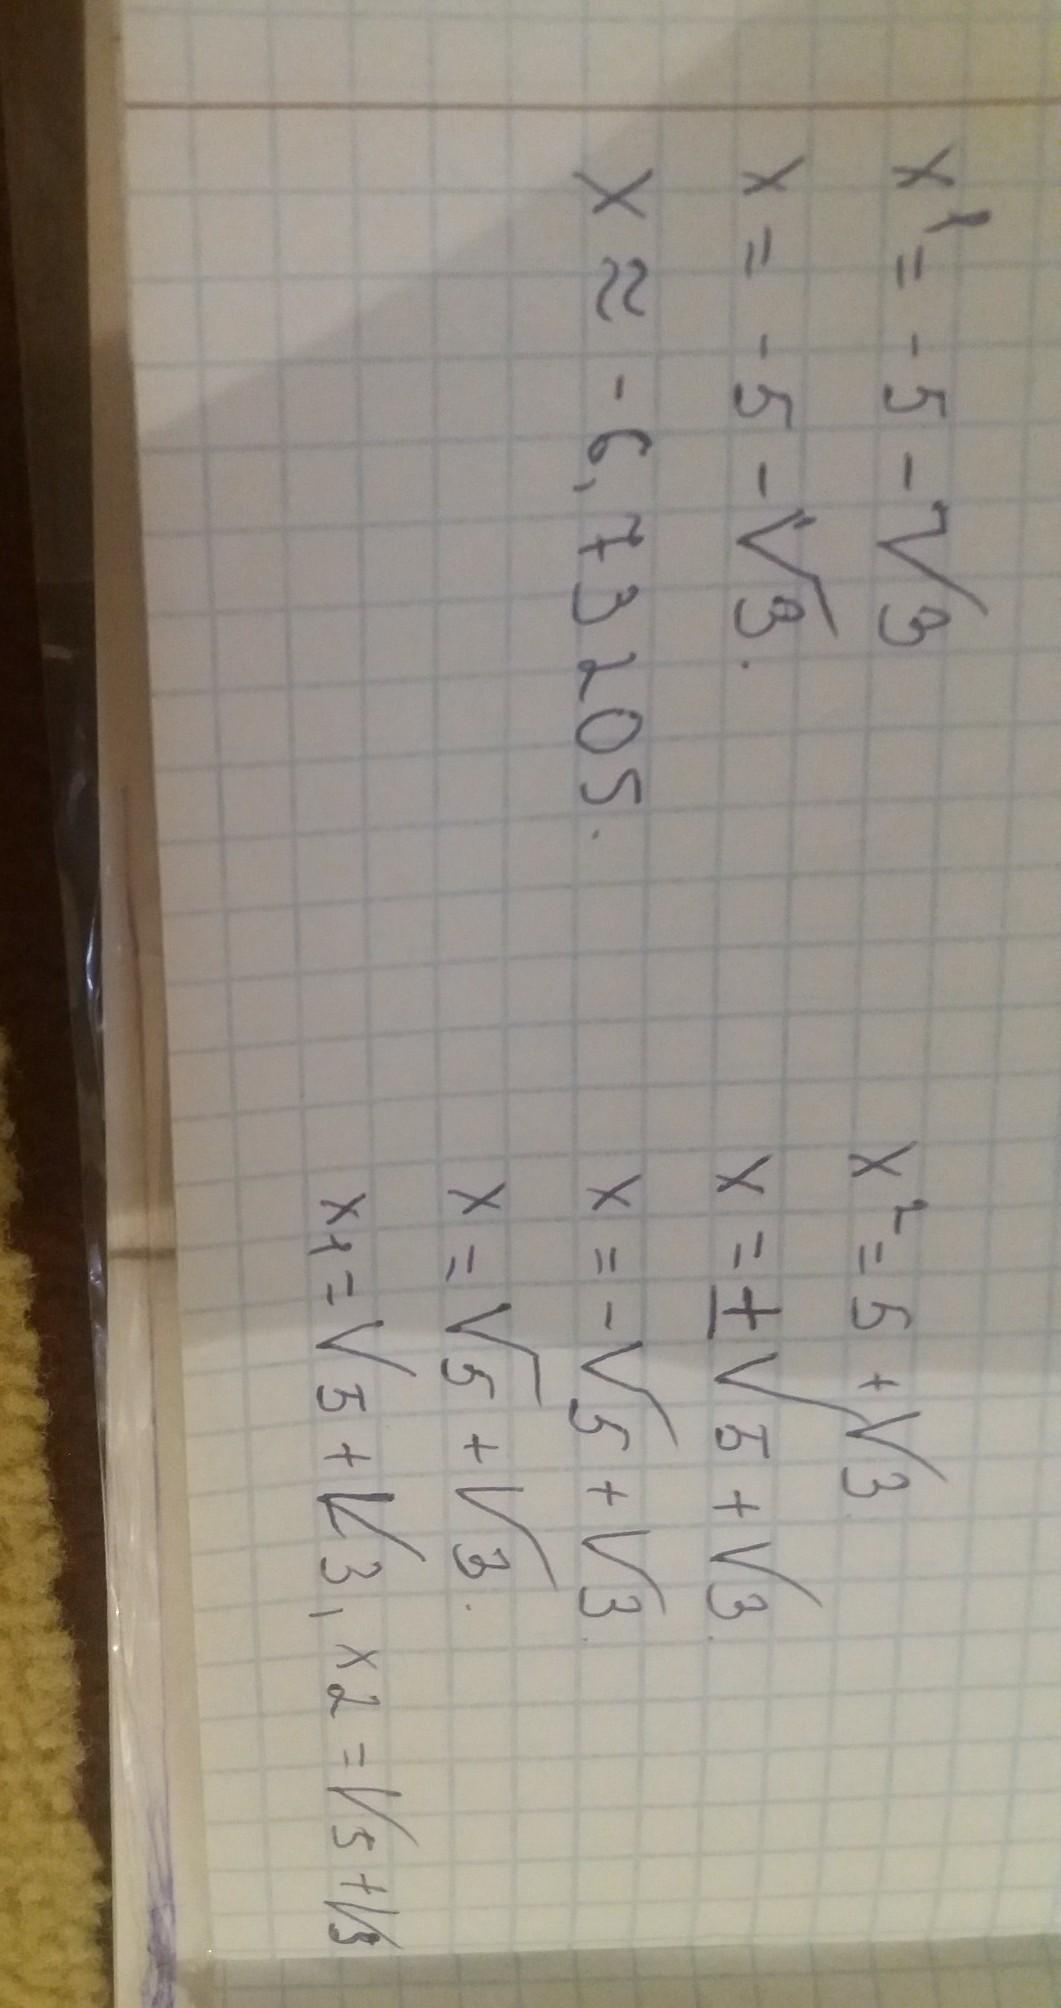 x¹ = -5 - √3
x = -5 - √3.
x ≈ -6,73205.
x² = 5 + √3
x = ±√5 + √3
x = -√5 + √3
x = √5 + √3.
x1 = √5 + √3, x2 = √5 + √3